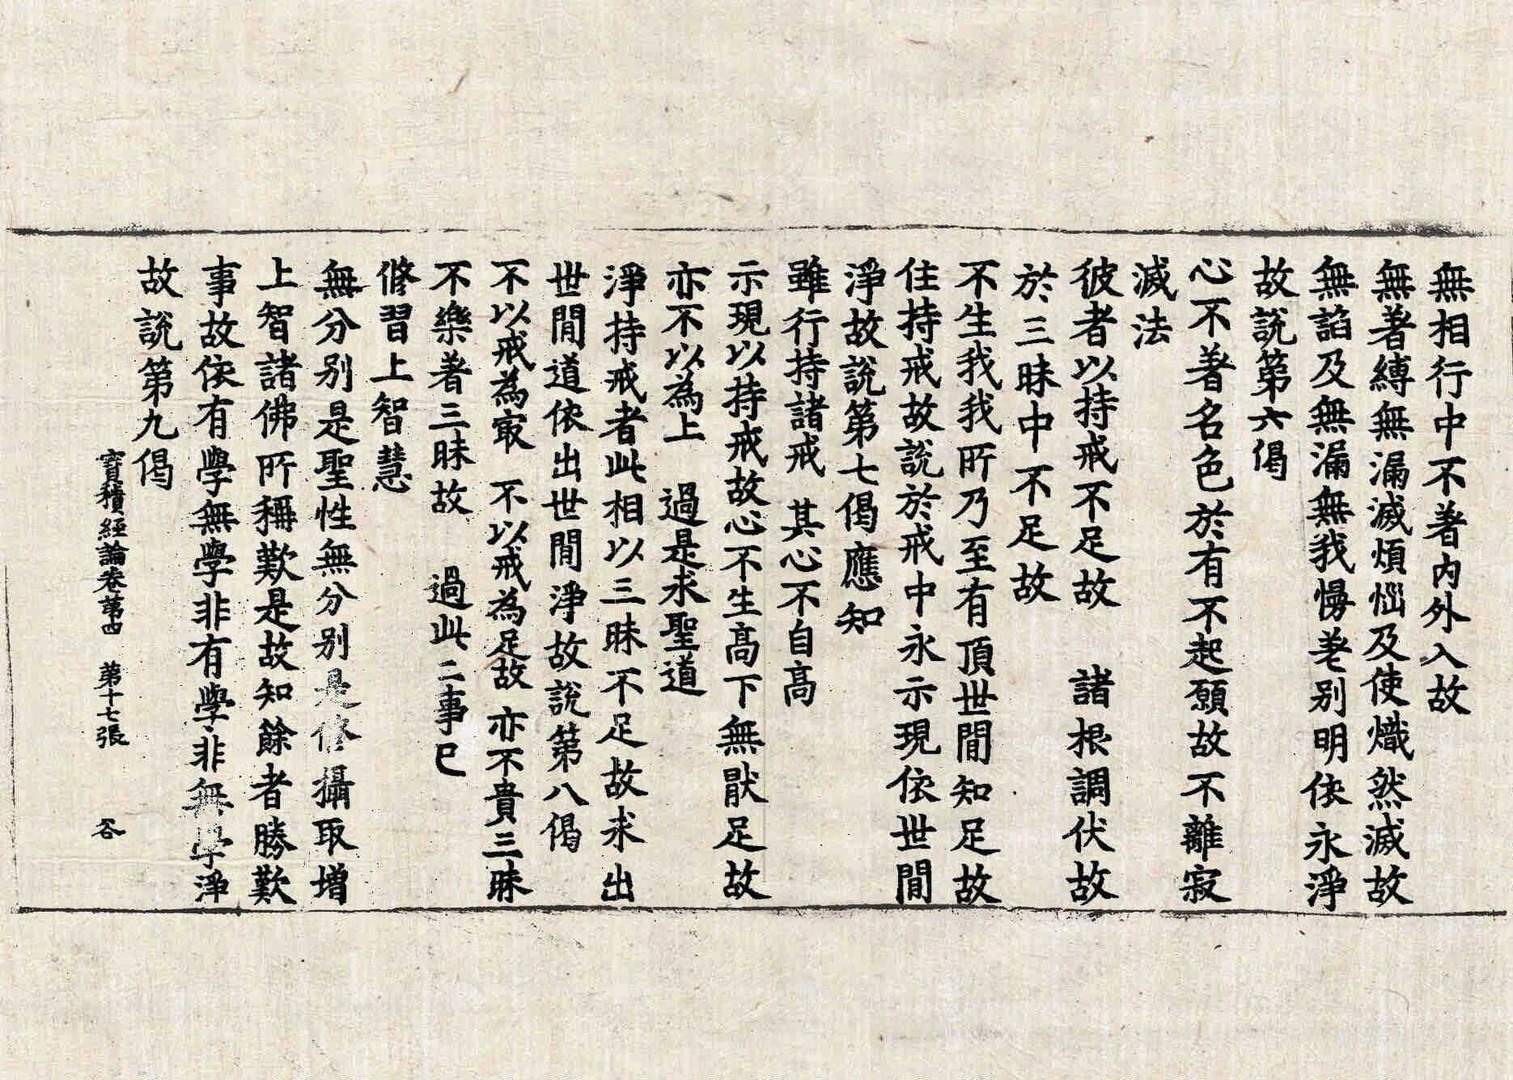 無相行中不著內外入故
無著縛無漏滅煩惱及使熾然滅故
無諂及無漏無我慢差別明依永淨
故說第六偈
心不著名色於有不起願故不離寂
滅法
彼者以持戒不足故　諸根調伏故
於三昧中不足故
不生我我所乃至有頂世間知足故
住持戒故說於戒中永示現依世間
淨故說第七偈應知
雖行持諸戒　其心不自高
示現以持戒故心不生高下無猒足故
亦不以為上　過是求聖道
淨持戒者此相以三昧不足故求出
世間道依出世間淨故說第八偈
不以戒為冣　不以戒為足故　亦不貴三昧
不樂著三昧故　過此二事已
修習上智慧
無分別是聖性無分別是修攝取增
上智諸佛所稱歎是故知餘者勝歎
事故依有學無學非有學非無學淨
故說第九偈
寶積經論卷第四　第十七張　容